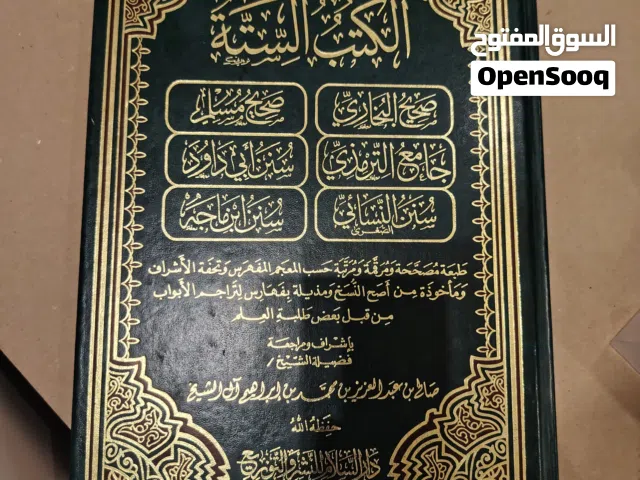 السوق المفتوح
OpenSooq
الكتب الستة
صحيح البخاري
صحيح مسلم
جامع الترمذي
سنن أبي داود
سنن النسائي
الصغرى
سنن ابن ماجه
طبعة مصححة ومرقمة ومرتبة حسب المعجم المفهرس وتحفة الأشراف
ومأخوذة من أصح النسخ ومذيلة بفهارس لتراجم الأبواب
من قبل بعض طلبة العلم
بإشراف ومراجعة
فضيلة الشيخ /
صالح بن عبد العزيز بن محمد بن إبراهيم آل الشيخ
حفظه الله
دار السلام للنشر والتوزيع